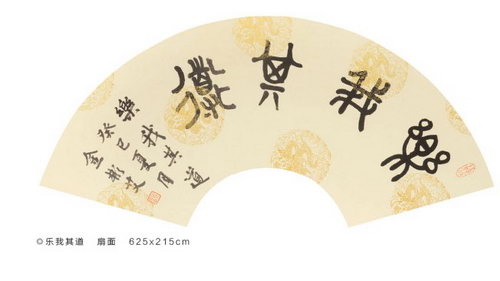 樂我其道
樂我其道
癸巳夏月
金彬
◎乐我其道 扇面 625x215cm